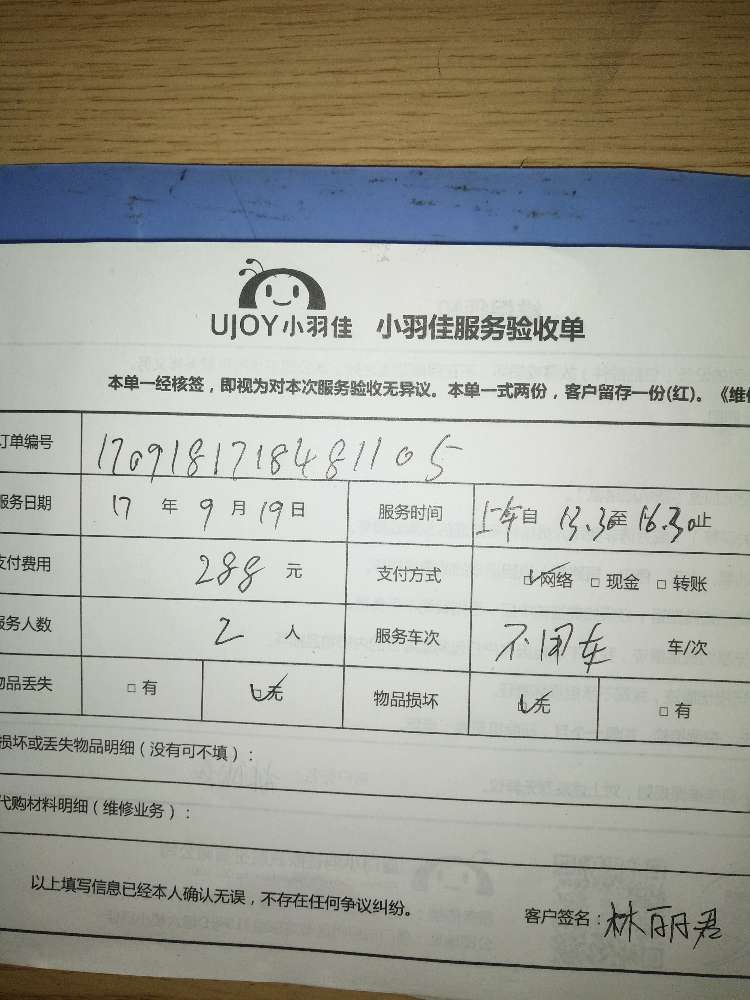 UJOY小羽佳 小羽佳服务验收单
本单一经核签，即视为对本次服务验收无异议。本单一式两份，客户留存一份(红)。《维修
订单编号 1709181718481105
服务日期 17 年 9 月 19 日 服务时间 自 13.30 至 16.30 止
支付费用 288 元 支付方式 ☑网络 □ 现金 □ 转账
服务人数 2 人 服务车次 不用车 车/次
物品丢失 □ 有 ☑无 物品损坏 ☑无 □ 有
损坏或丢失物品明细（没有可不填）：
代购材料明细（维修业务）：
以上填写信息已经本人确认无误，不存在任何争议纠纷。 客户签名：林丽君